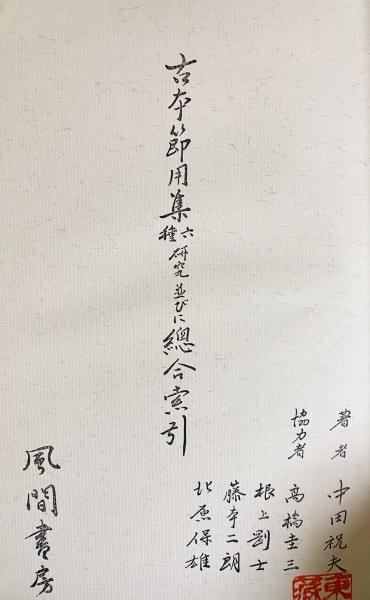 著者 中田祝夫
協力者 高橋圭三
根上剛士
藤本二朗
北原保雄
古本節用集六種研究並びに總合索引
風間書房